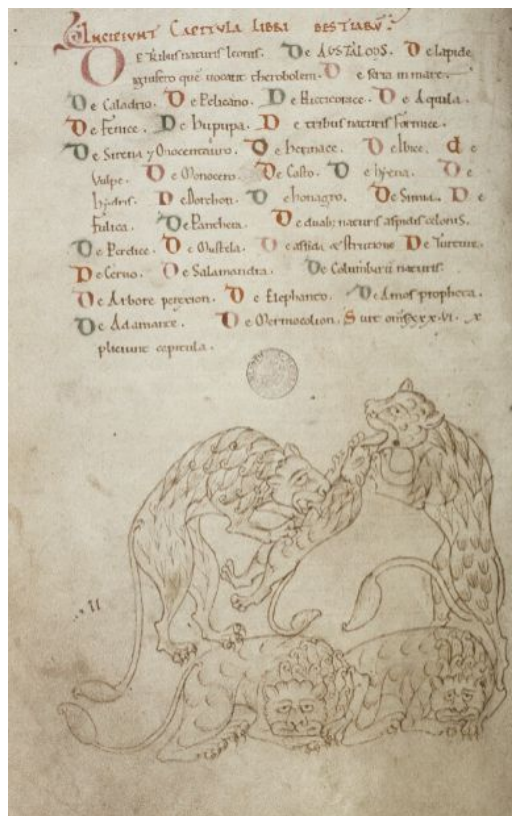 INCIPIUNT CAPITULA LIBRI BESTIARU.
De tribus naturis leonis. De AUSTALOPS. De lapide
ignifero que uocant cherobolem. De serra in mare.
De Caladrio. De Pelicano. De Nicticorace. De Aquila.
De Fenice. De hupupa. De tribus naturis formice.
De Sirena 7 Onocentauro. De herinace. De Ibice. de
Vulpe. De Monocero. De Casto. De hyena. De
hydris. De Dorchon. De honagro. De Simia. De
Fulica. De Panthera. De duab; naturis aspidis celonis.
De Perdice. De Mustela. De astida & strutione De Turture.
De Ceruo. De Salamandra. De Columbarū naturis.
De Arbore perexion. De Elephanto. De Amos propheta.
De Adamante. De Mermocolion. Sunt oms xxx.vi. ex
pliciunt capitula.